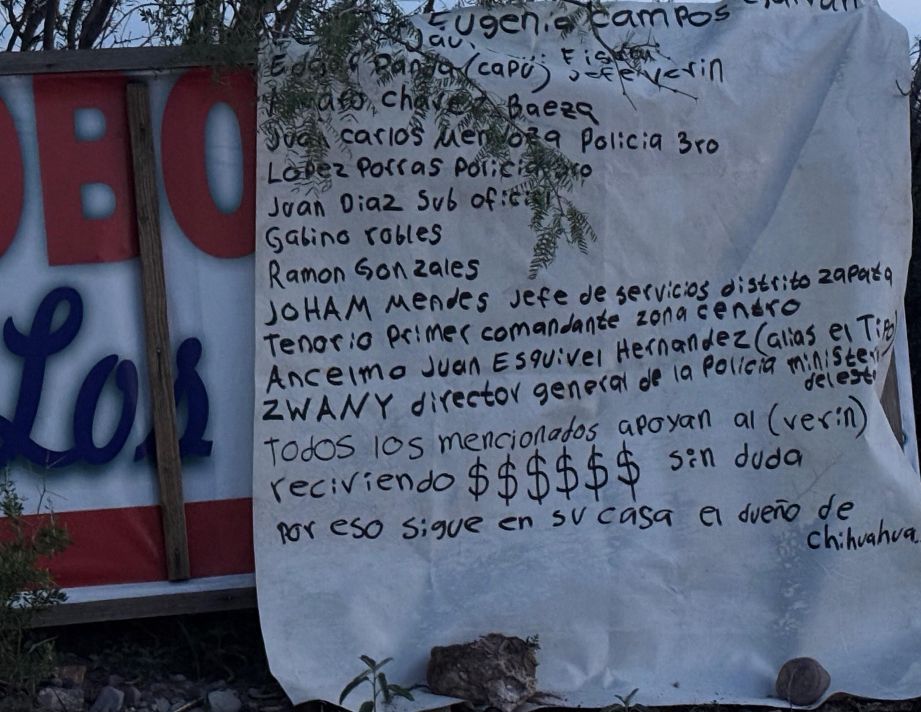 Eugenia campos
(capu) Jefe verin
Baeza
Juan carlos Mendoza Policia 3ro
Lopez Porras Policia
Juan Diaz Sub oficial
Gabino robles
Ramon Gonzales
JOHAM Mendes Jefe de servicios distrito zapata
Tenorio Primer comandante zona centro
Ancelmo Juan Esquivel Hernandez (alias el Tifo)
ZWANY director general de la Policia ministerial
delest
Todos los mencionados apoyan al (verin)
reciviendo $$$$$$ sin duda
por eso sigue en su casa el dueño de
chihuahua.
OBO
Los